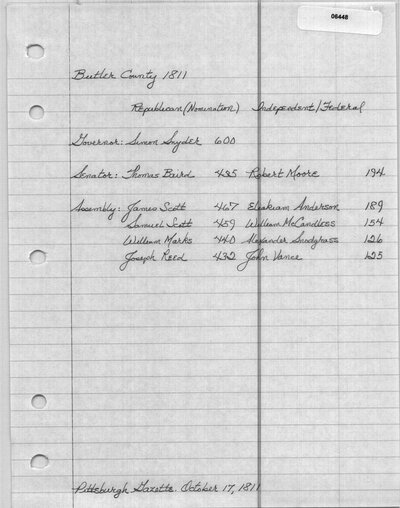 08448
Butler County 1811
Republican (Nomination) Independent/Federal
Governor: Simon Snyder 600
Senator: Thomas Baird 435 Robert Moore 194
Assembly: James Scott 467 Eleakiam Anderson 189
Samuel Scott 459 William McCandless 154
William Marks 440 Alexander Snodgrass 126
Joseph Reed 432 John Vance 125
Pittsburgh Gazette. October 17, 1811